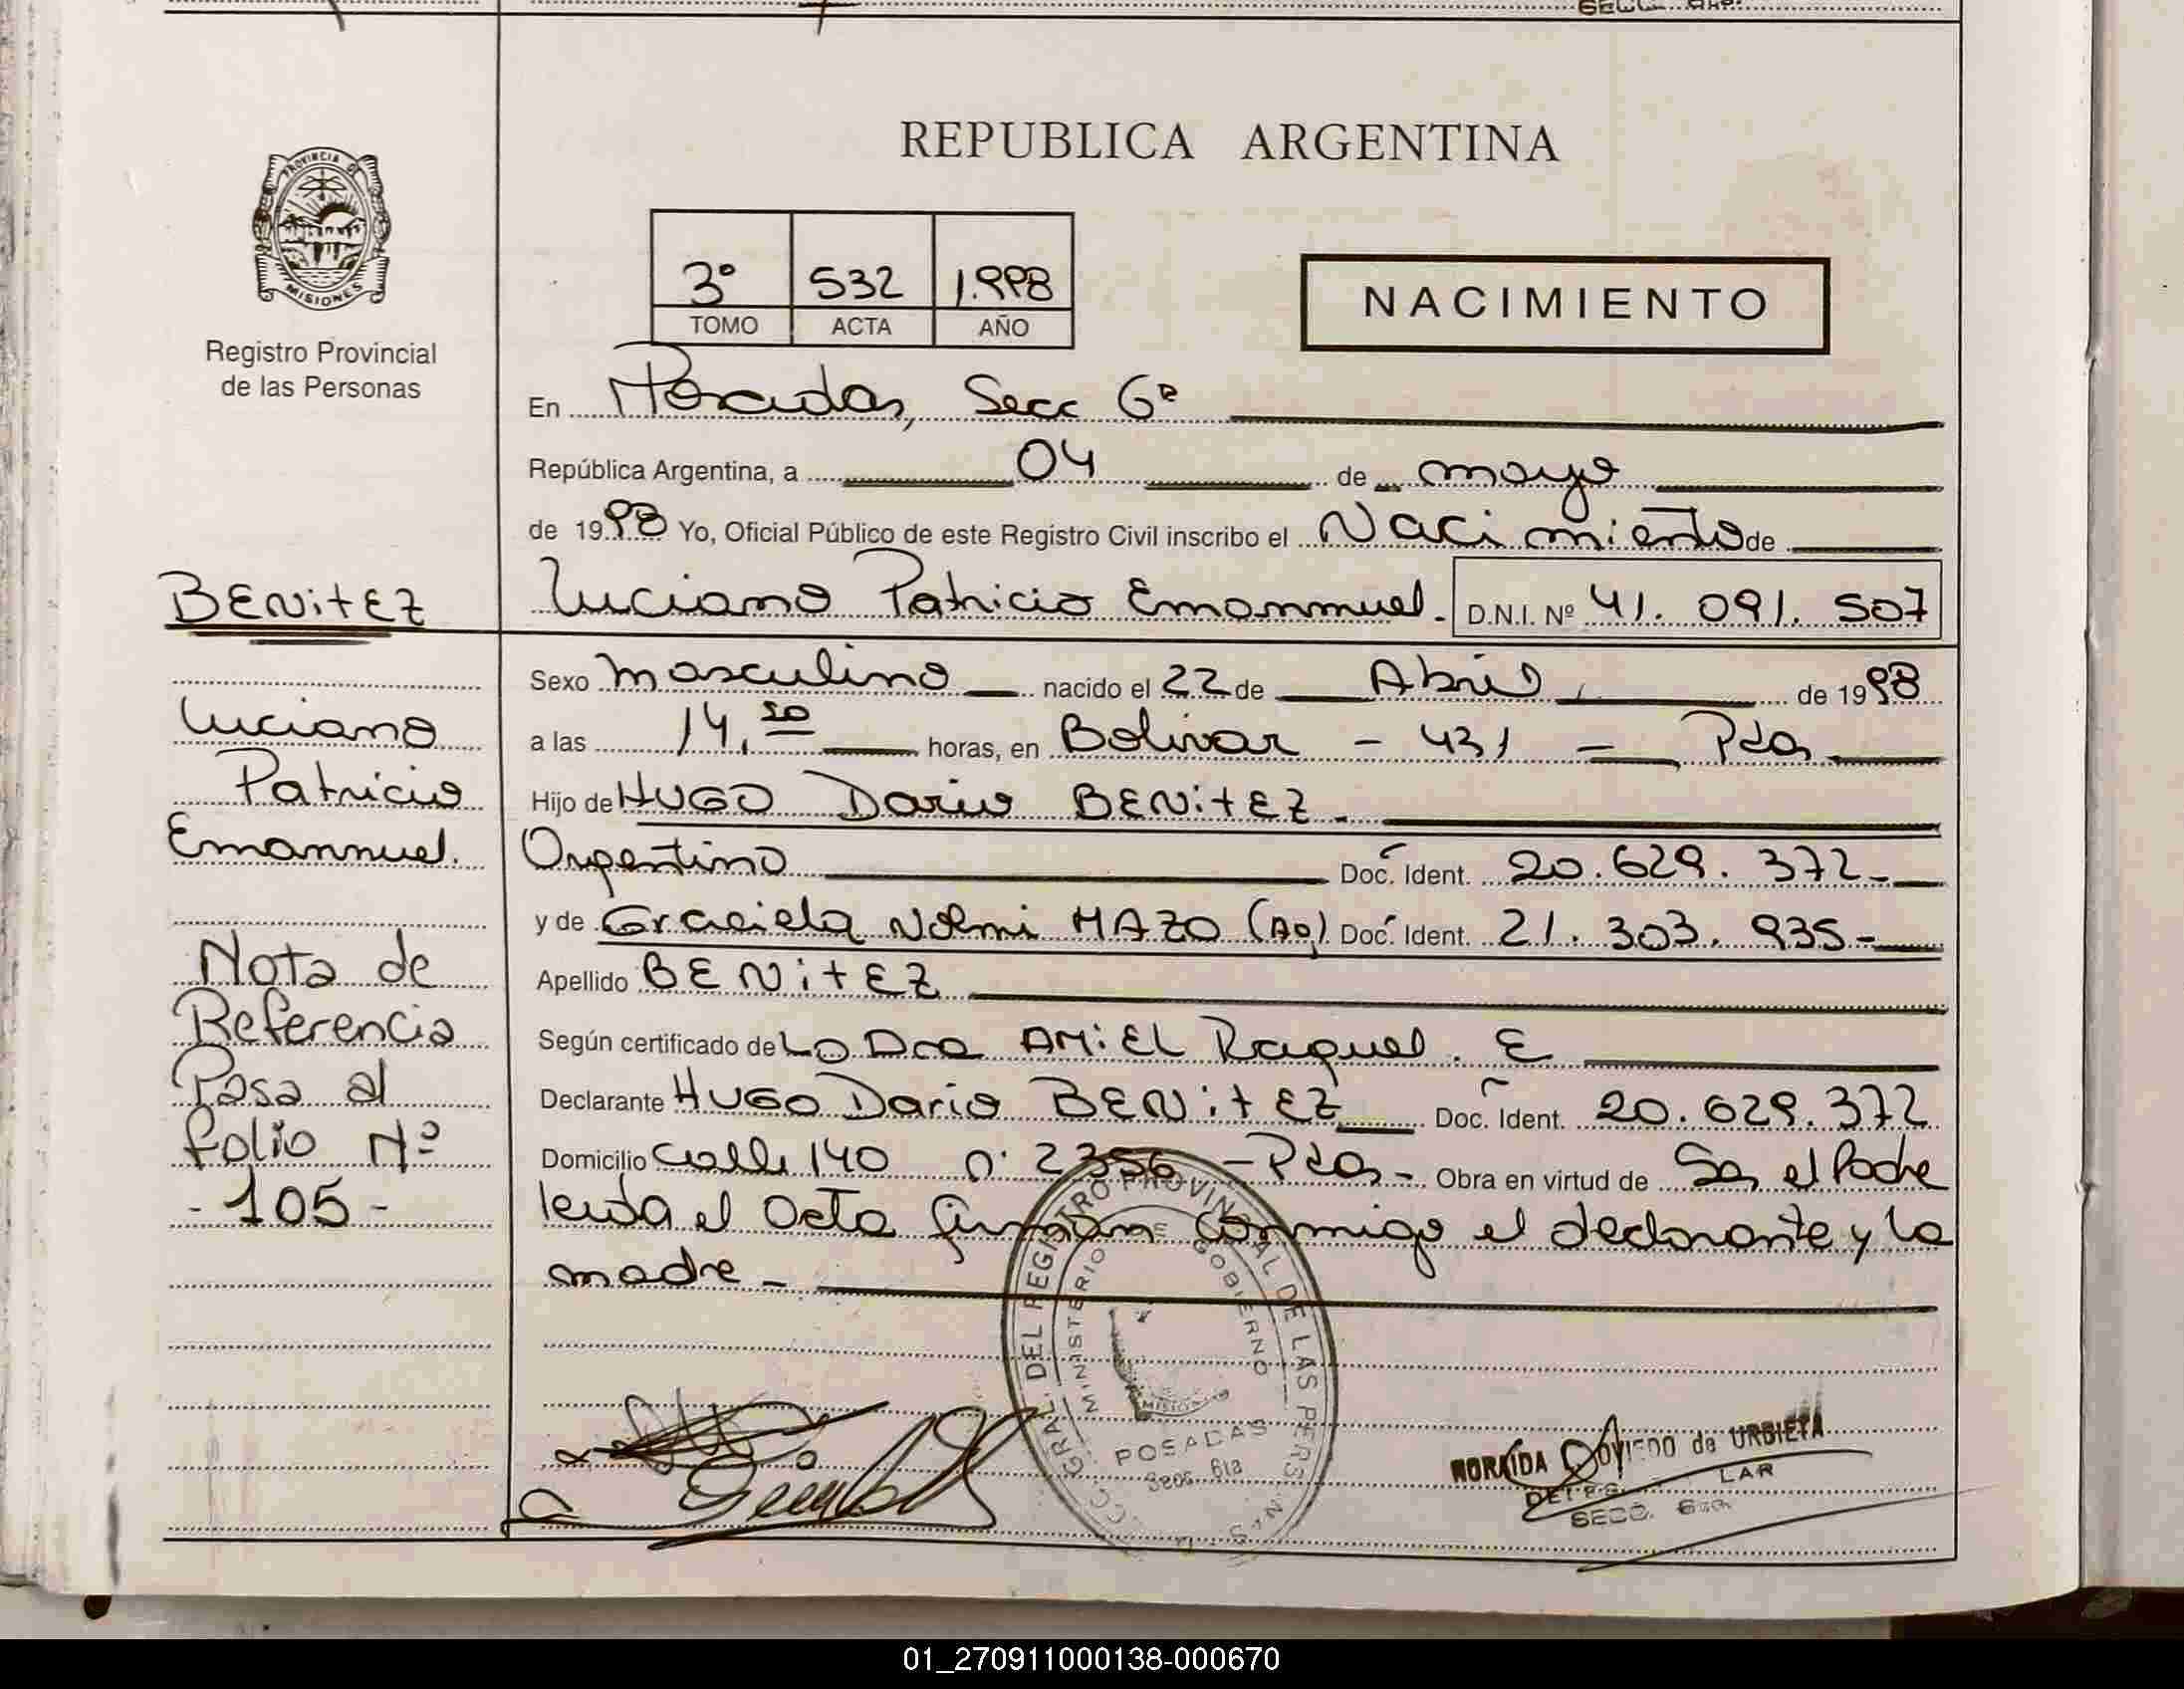 REPUBLICA ARGENTINA
PROVINCIA DE
MISIONES
Registro Provincial
de las Personas
3º 532 1.998
TOMO ACTA AÑO
NACIMIENTO
En Posadas, Secc 6ª
República Argentina, a 04 de mayo
de 1998 Yo, Oficial Público de este Registro Civil inscribo el Nacimiento de
BENitEZ
Luciano Patricio Emannuel. D.N.I. Nº 41. 091. 507
Sexo masculino nacido el 22 de Abril, de 1998
Luciano
a las 14, horas, en Bolivar - 431 - Pdas
Patricio
Hijo de HUGO Dario BENitEZ.
Emannuel.
Argentino Doc. Ident. 20.629.372-
y de Graciela Noemi MAZO (Ag) Doc. Ident. 21. 303. 935-
Nota de
Apellido BENitEZ
Referencia
Según certificado de La Dra AMiEL Raquel. E
Pasa al
Declarante HUGO Dario BENitEZ Doc. Ident. 20.629.372
folio Nº
Domicilio Calle 140 n° 2356 - Pdas- Obra en virtud de Ser el Padre
- 105 -
leida el Acta firman conmigo el declarante y la
madre -
GRAL. DEL REGISTRO PROVINCIAL DE LAS PERSONAS
MINISTERIO DE GOBIERNO
MISIONES
POSADAS
Secc. 6ta
OVIEDO de URBIETA
SECC. 6ta
01_270911000138-000670